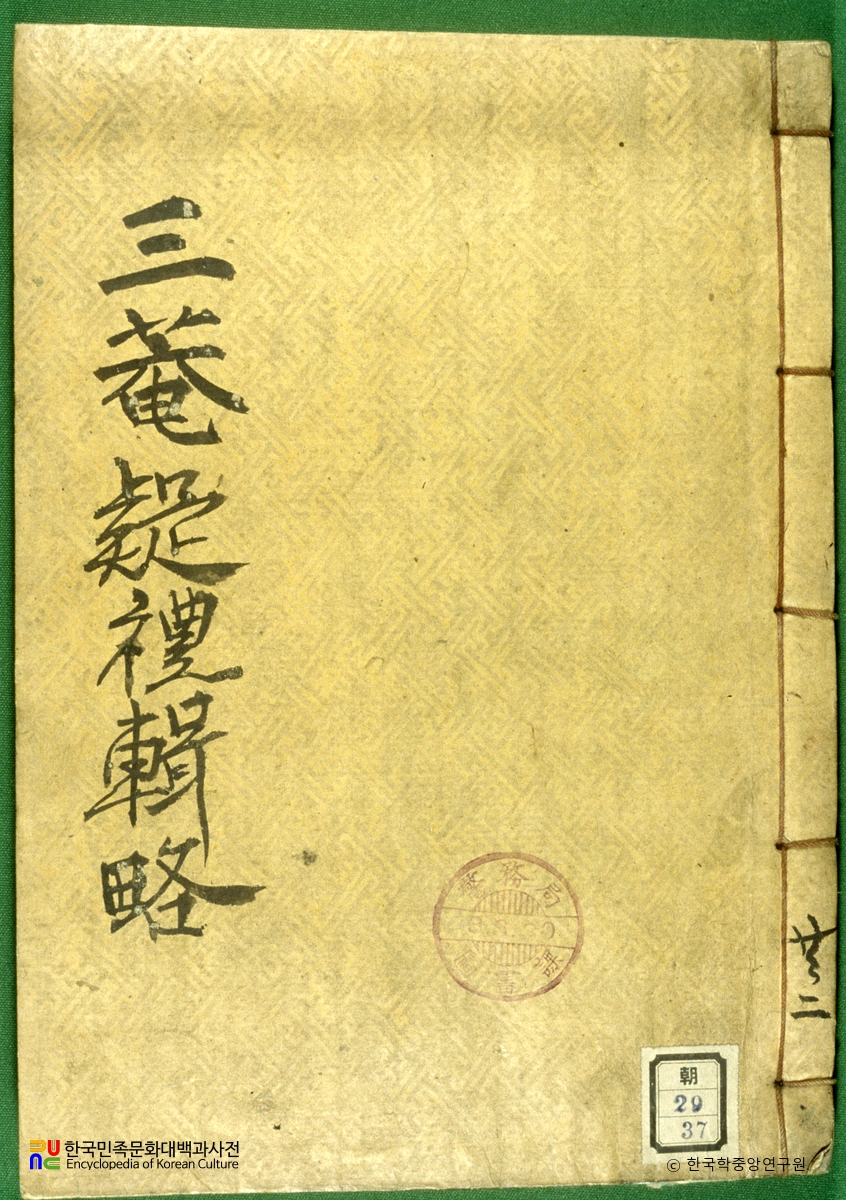 三菴疑禮輯略
警務局
圖書課
共二
朝
29
37
한국민족문화대백과사전
Encyclopedia of Korean Culture
© 한국학중앙연구원